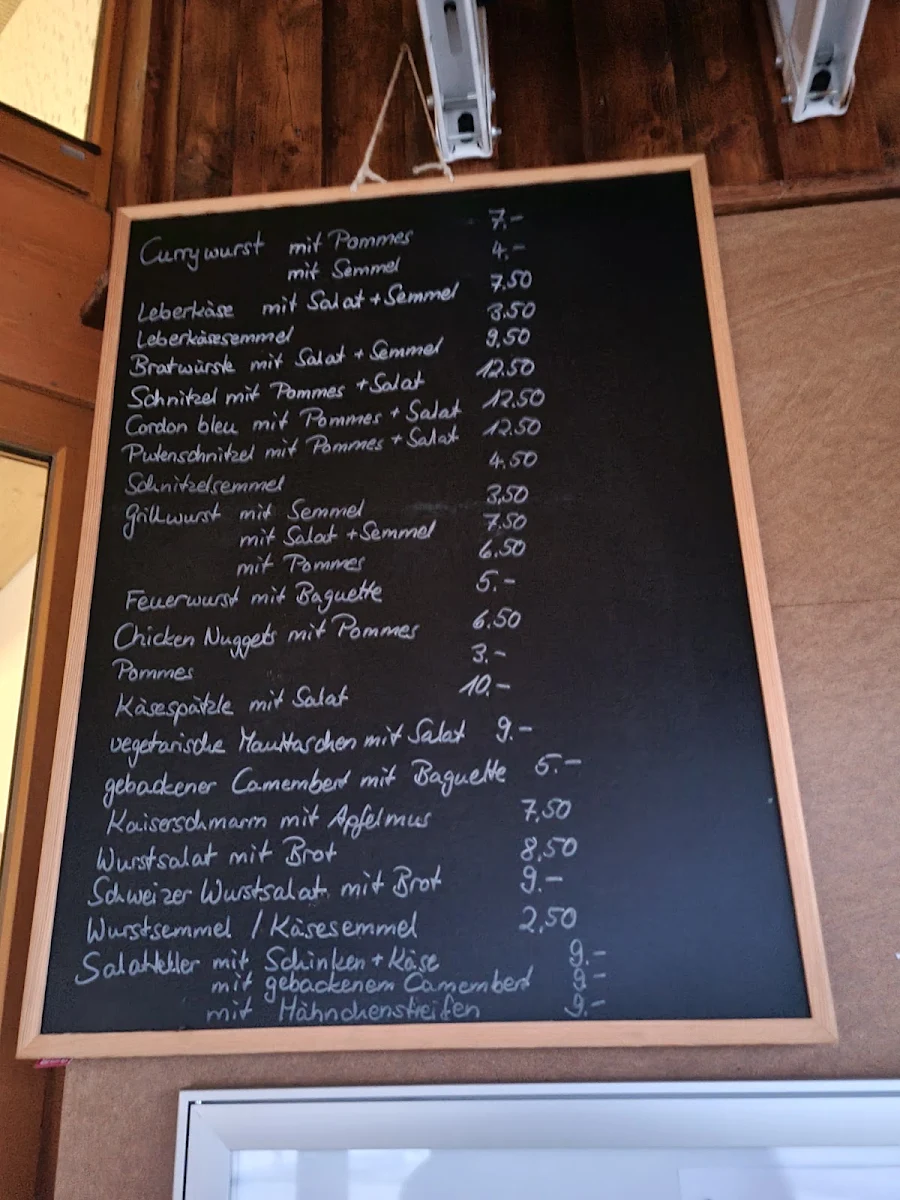 Currywurst mit Pommes 7.-
mit Semmel 4.-
Leberkäse mit Salat + Semmel 7,50
Leberkäsesemmel 3,50
Bratwürste mit Salat + Semmel 9,50
Schnitzel mit Pommes + Salat 12,50
Cordon bleu mit Pommes + Salat 12,50
Putenschnitzel mit Pommes + Salat 12,50
Schnitzelsemmel 4,50
Grillwurst mit Semmel 3,50
mit Salat + Semmel 7,50
mit Pommes 6,50
Feuerwurst mit Baguette 5.-
Chicken Nuggets mit Pommes 6,50
Pommes 3.-
Käsespätzle mit Salat 10.-
vegetarische Maultaschen mit Salat 9.-
gebackener Camembert mit Baguette 5.-
Kaiserschmarrn mit Apfelmus 7,50
Wurstsalat mit Brot 8,50
Schweizer Wurstsalat mit Brot 9.-
Wurstsemmel / Käsesemmel 2,50
Salatteller mit Schinken + Käse 9.-
mit gebackenem Camembert 9.-
mit Hähnchenstreifen 9.-